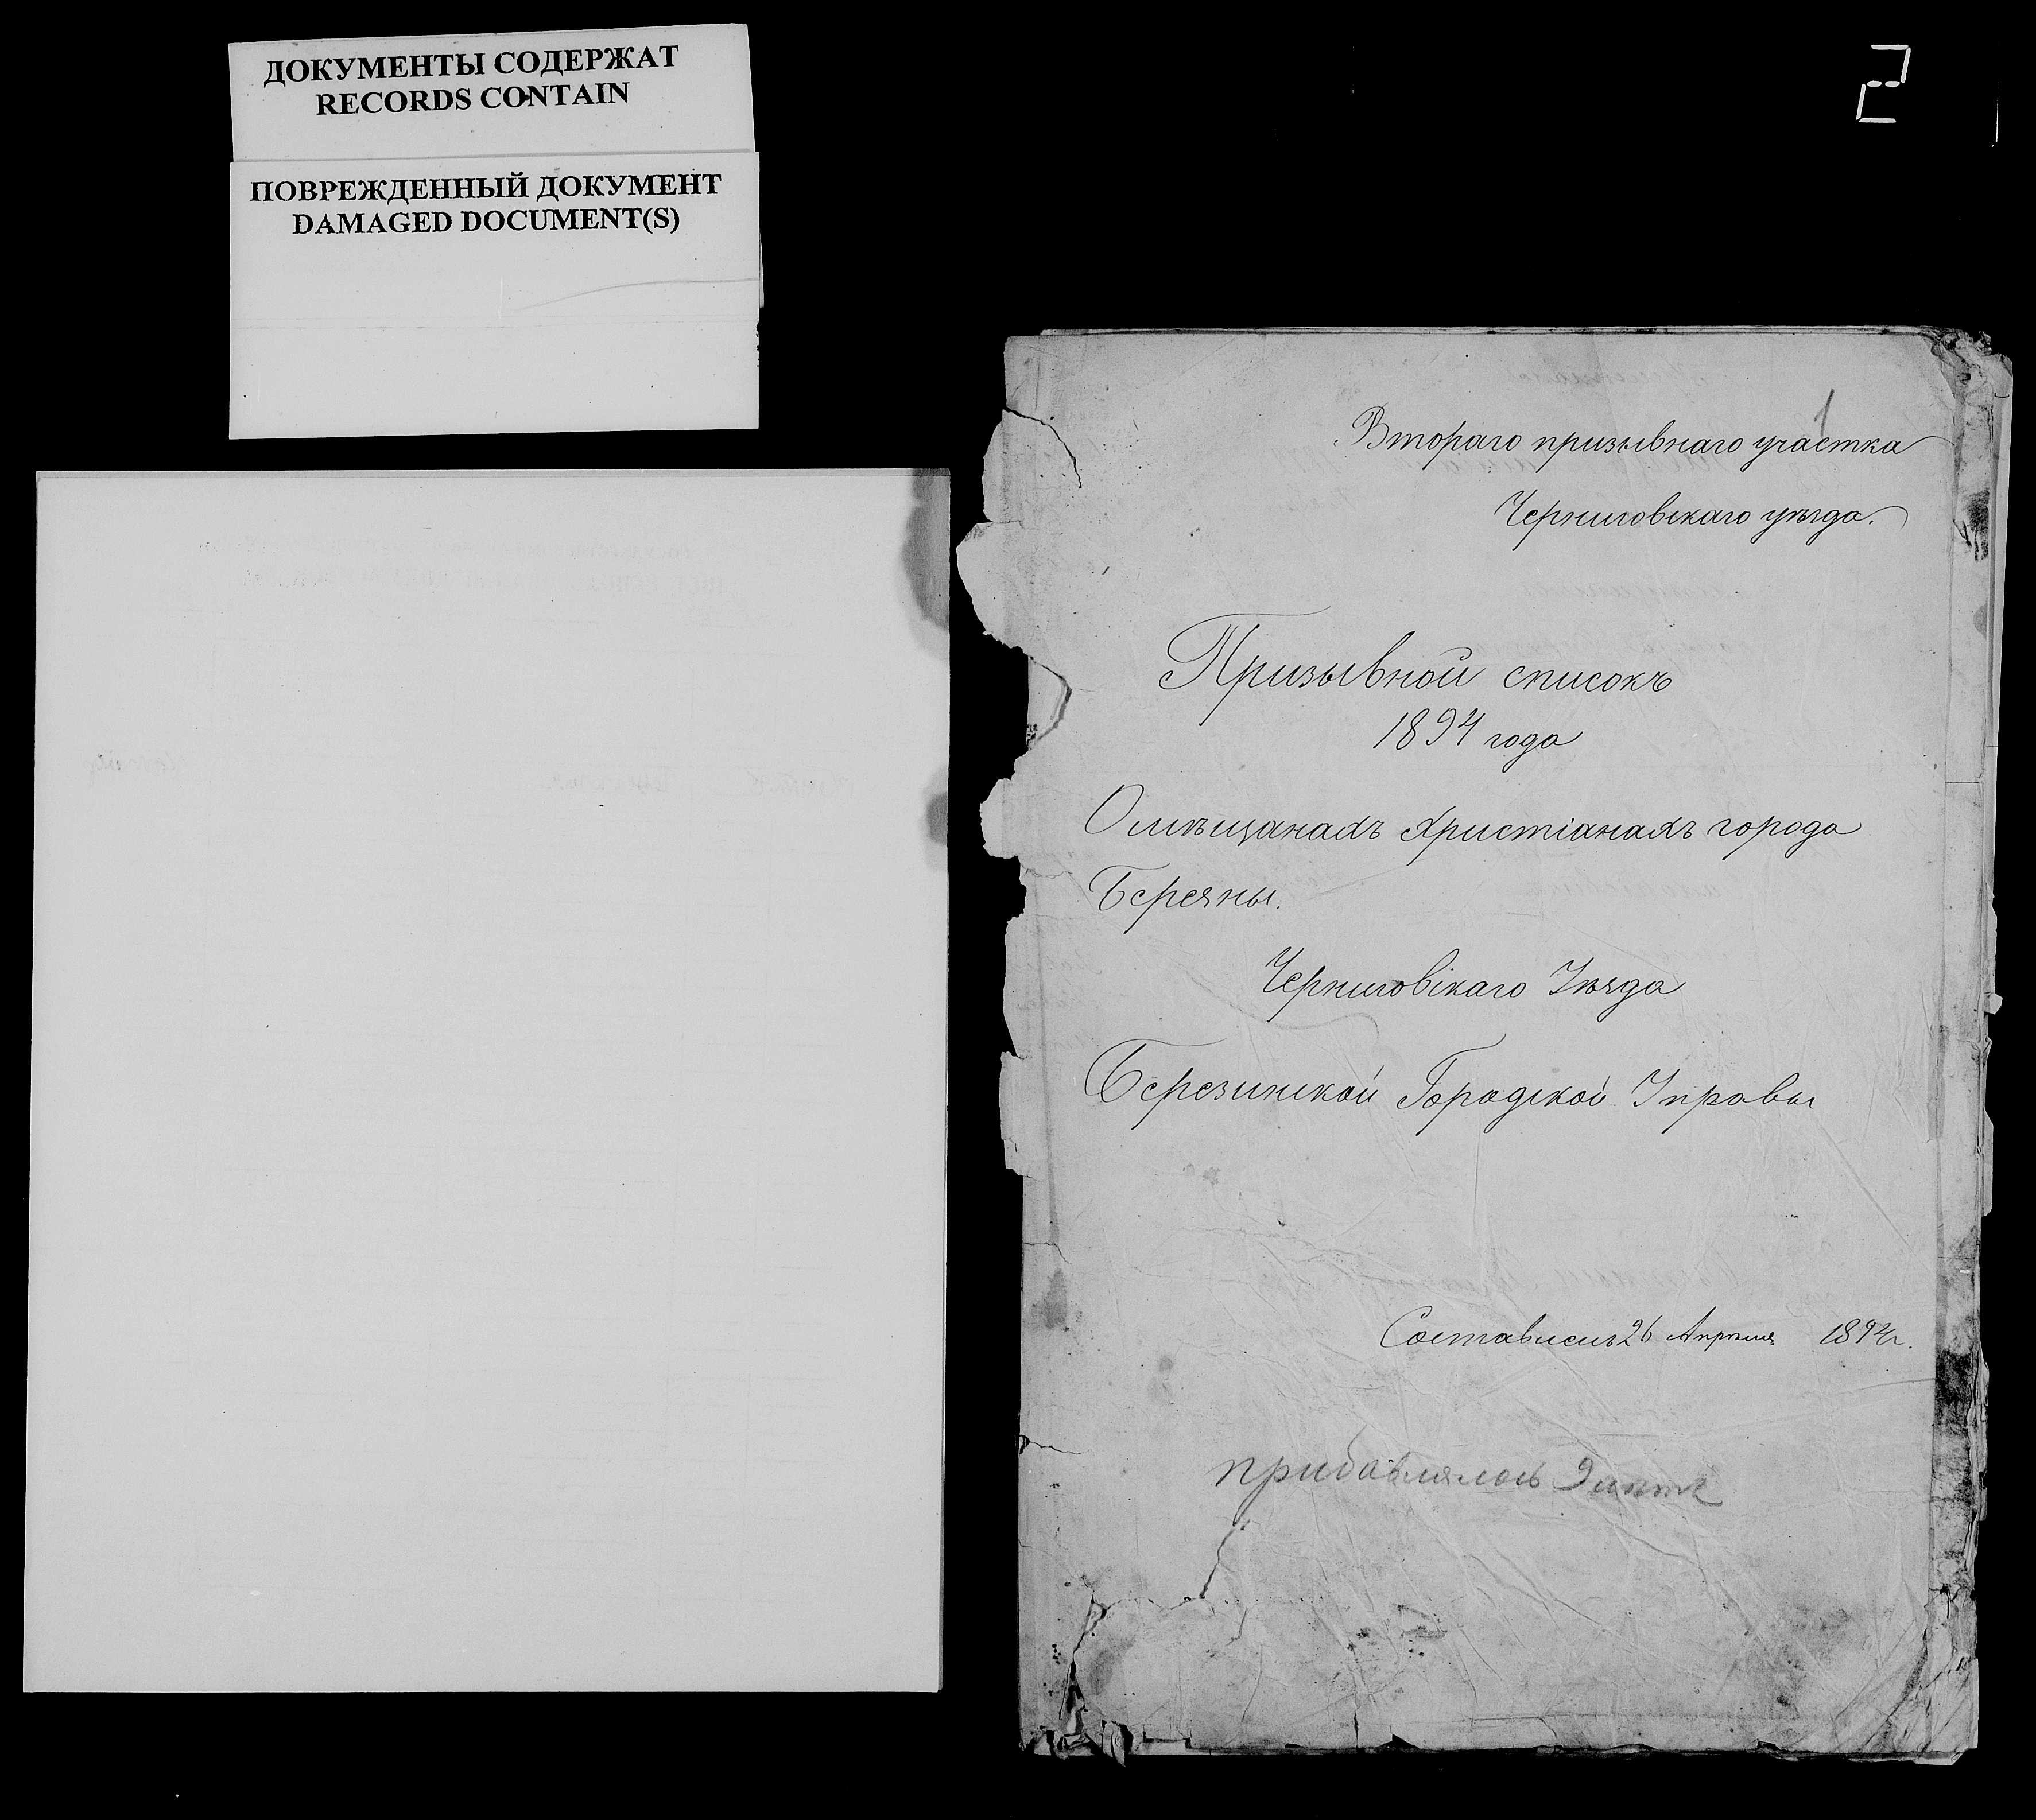 ДОКУМЕНТЫ СОДЕРЖАТ
RECORDS CONTAIN
ПОВРЕЖДЕННЫЙ ДОКУМЕНТ
DAMAGED DOCUMENT(S)
2
1
Втораго призывнаго участка
Черниговскаго уѣзда.
Призывной списокъ
1894 года
О мѣщанахъ христіанахъ города
Березны.
Черниговскаго Уѣзда
Березинской Городской Управы
Составленъ 26 Апрѣля 1894 г.
прибавлялось